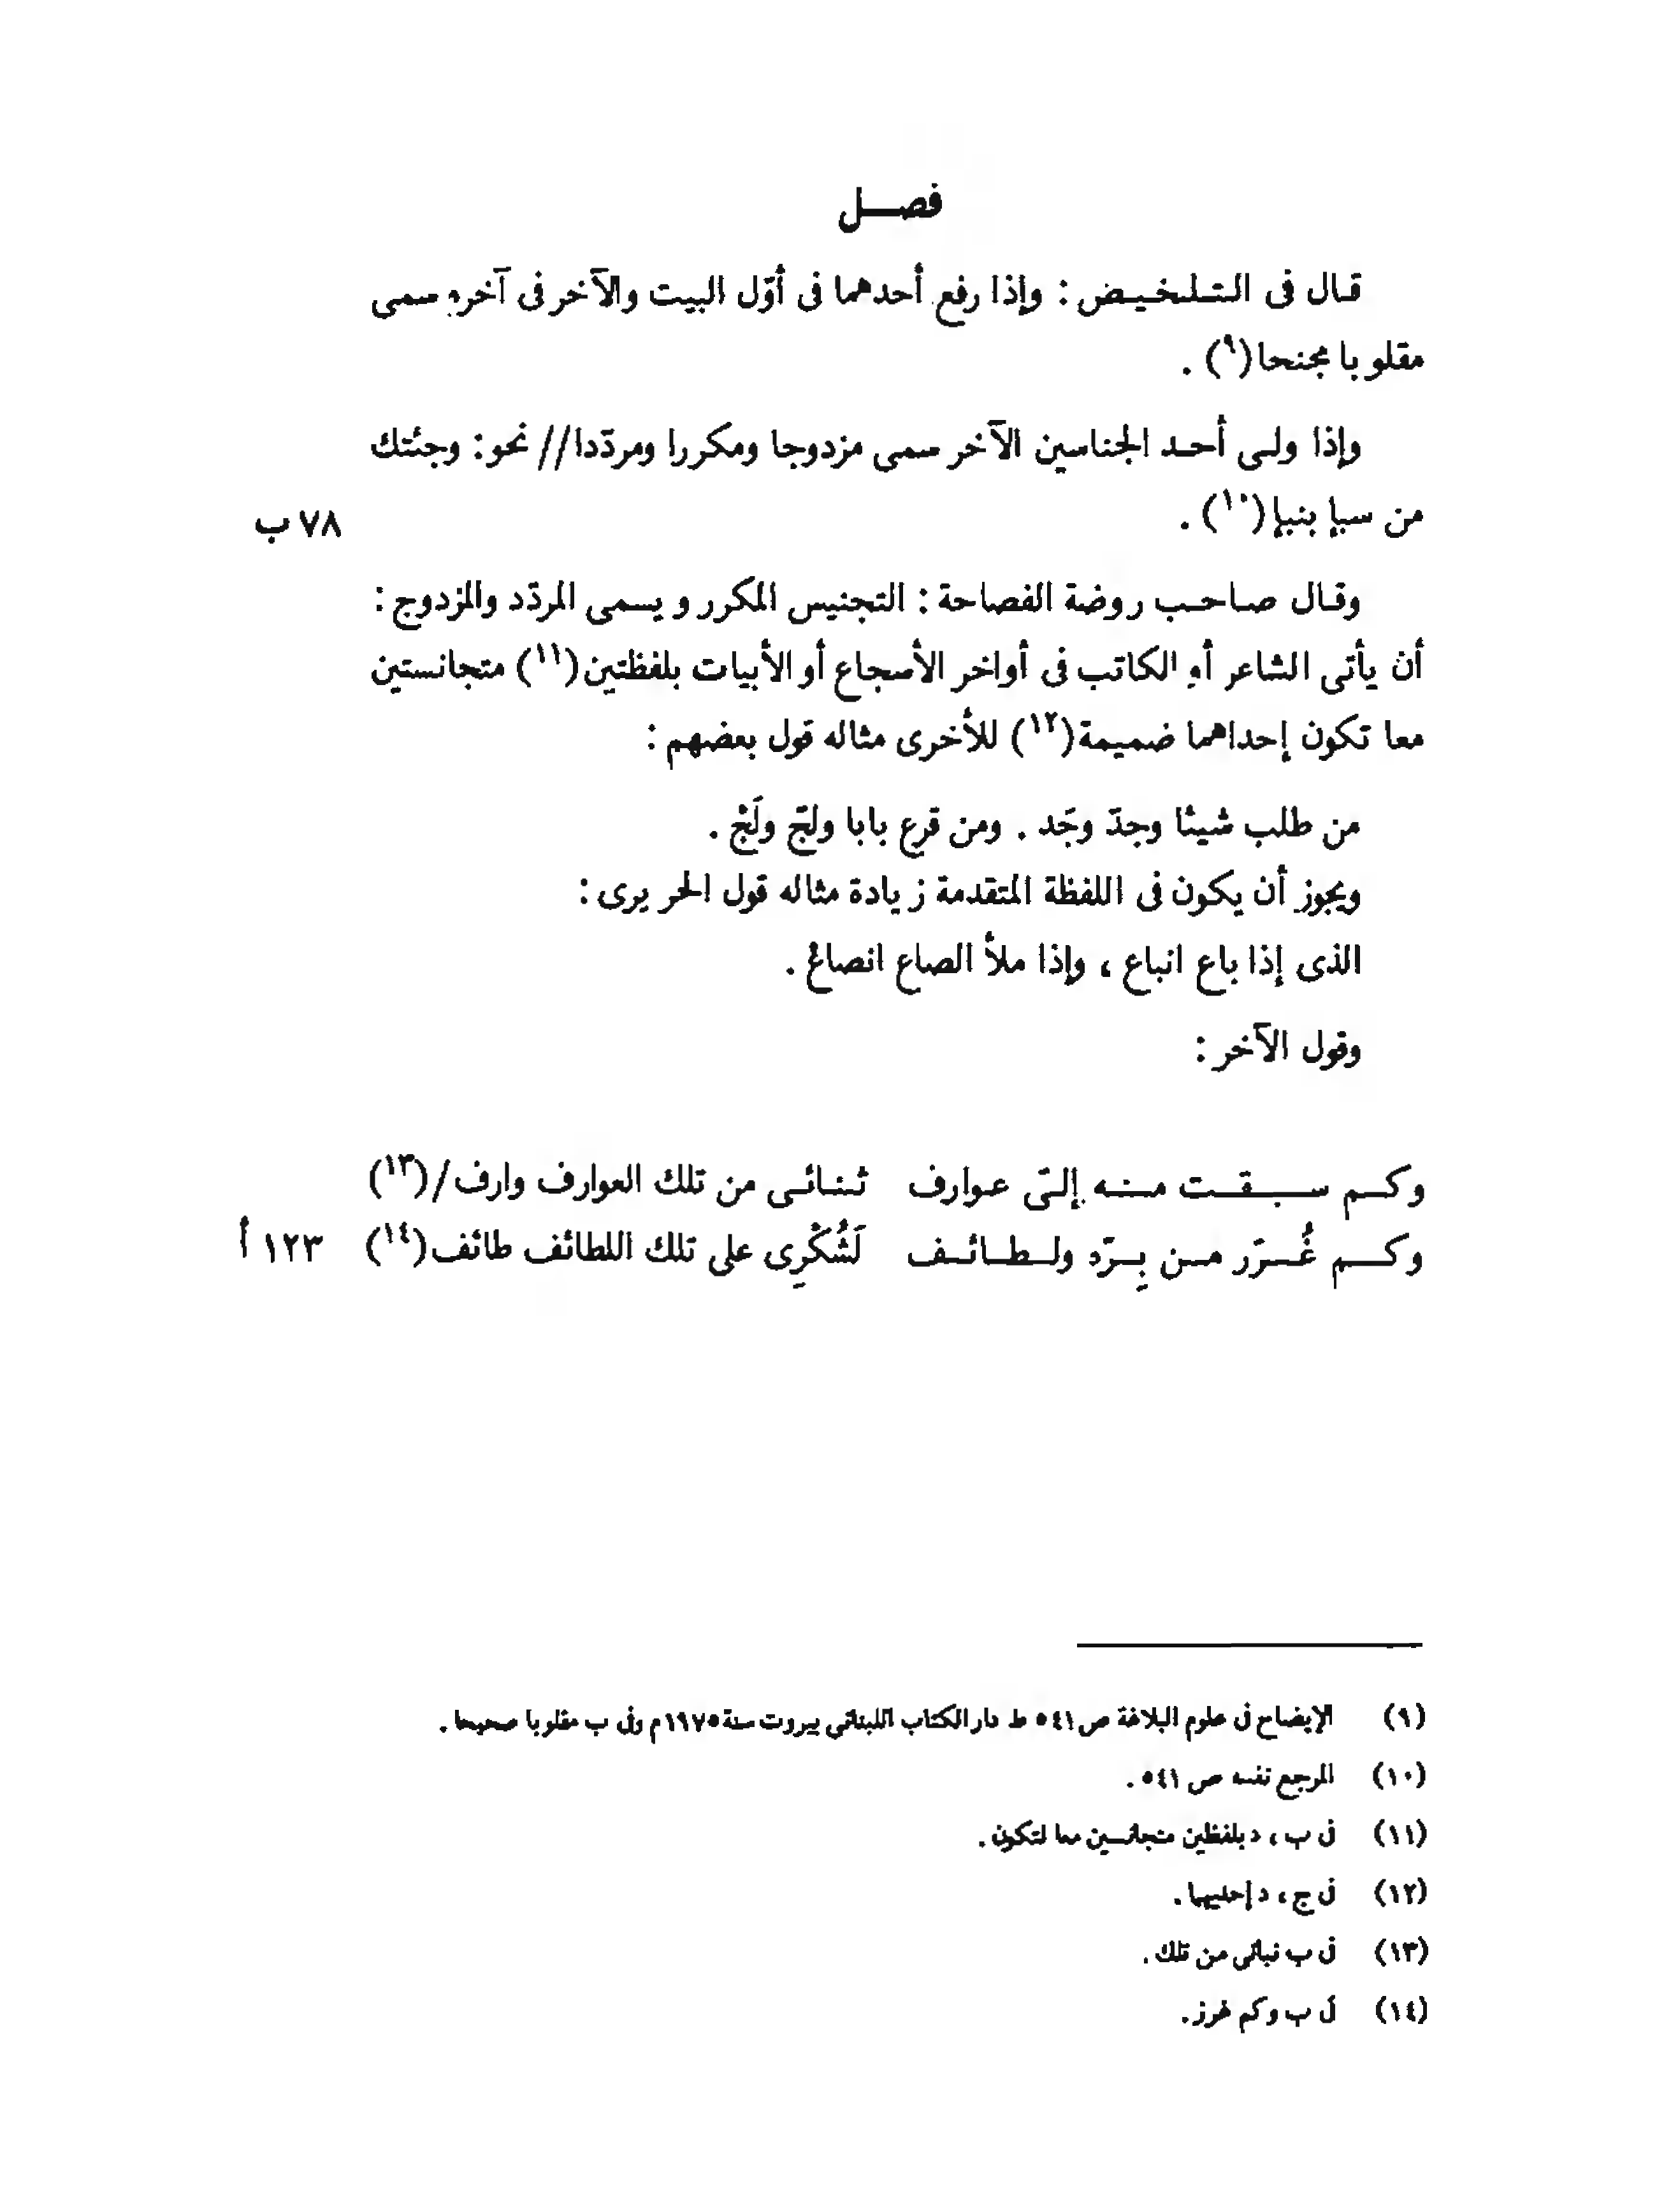 فصـــل
قال فى التلخيص : وإذا رفع أحدهما فى أوّل البيت والآخر فى آخره سمى
مقلوبا مجنحا(٩) .
وإذا ولى أحد الجناسين الآخر سمى مزدوجا ومكررا ومردّدا// نحو : وجئتك
من سبإ بنبإ(١٠) .
٧٨ ب
وقال صاحب روضة الفصاحة : التجنيس المكرر ويسمى المردّد والمزدوج :
أن يأتى الشاعر أو الكاتب فى أواخر الأسجاع أو الأبيات بلفظتين(١١) متجانستين
معا تكون إحداهما ضميمة(١٢) للأخرى مثاله قول بعضهم :
من طلب شيئا وجدّ وجَد . ومن قرع بابا ولجّ ولَجْ .
ويجوز أن يكون فى اللفظة المتقدمة زيادة مثاله قول الحريرى :
الذى إذا باع انباع ، وإذا ملأ الصاع انصاعْ .
وقول الآخر :
وكم سبقت منه إلىّ عوارف ثنائى من تلك العوارف وارف/(١٣)
وكم غُرَر من بِرّد ولطائف لَشُكْرِى على تلك اللطائف طائف(١٤)
١٢٣ أ
(٩) الإيضاح فى علوم البلاغة ص ٥٤١ ط دار الكتاب اللبنانى بيروت سنة ١٩٧٥ م وفى ب مقلوبا صحيحا .
(١٠) المرجع نفسه ص ٥٤١ .
(١١) فى ب ، د بلفظين متجانسين معا لتكون .
(١٢) فى ج ، د إحديهما .
(١٣) فى ب نباتى من تلك .
(١٤) فى ب وكم غرز .